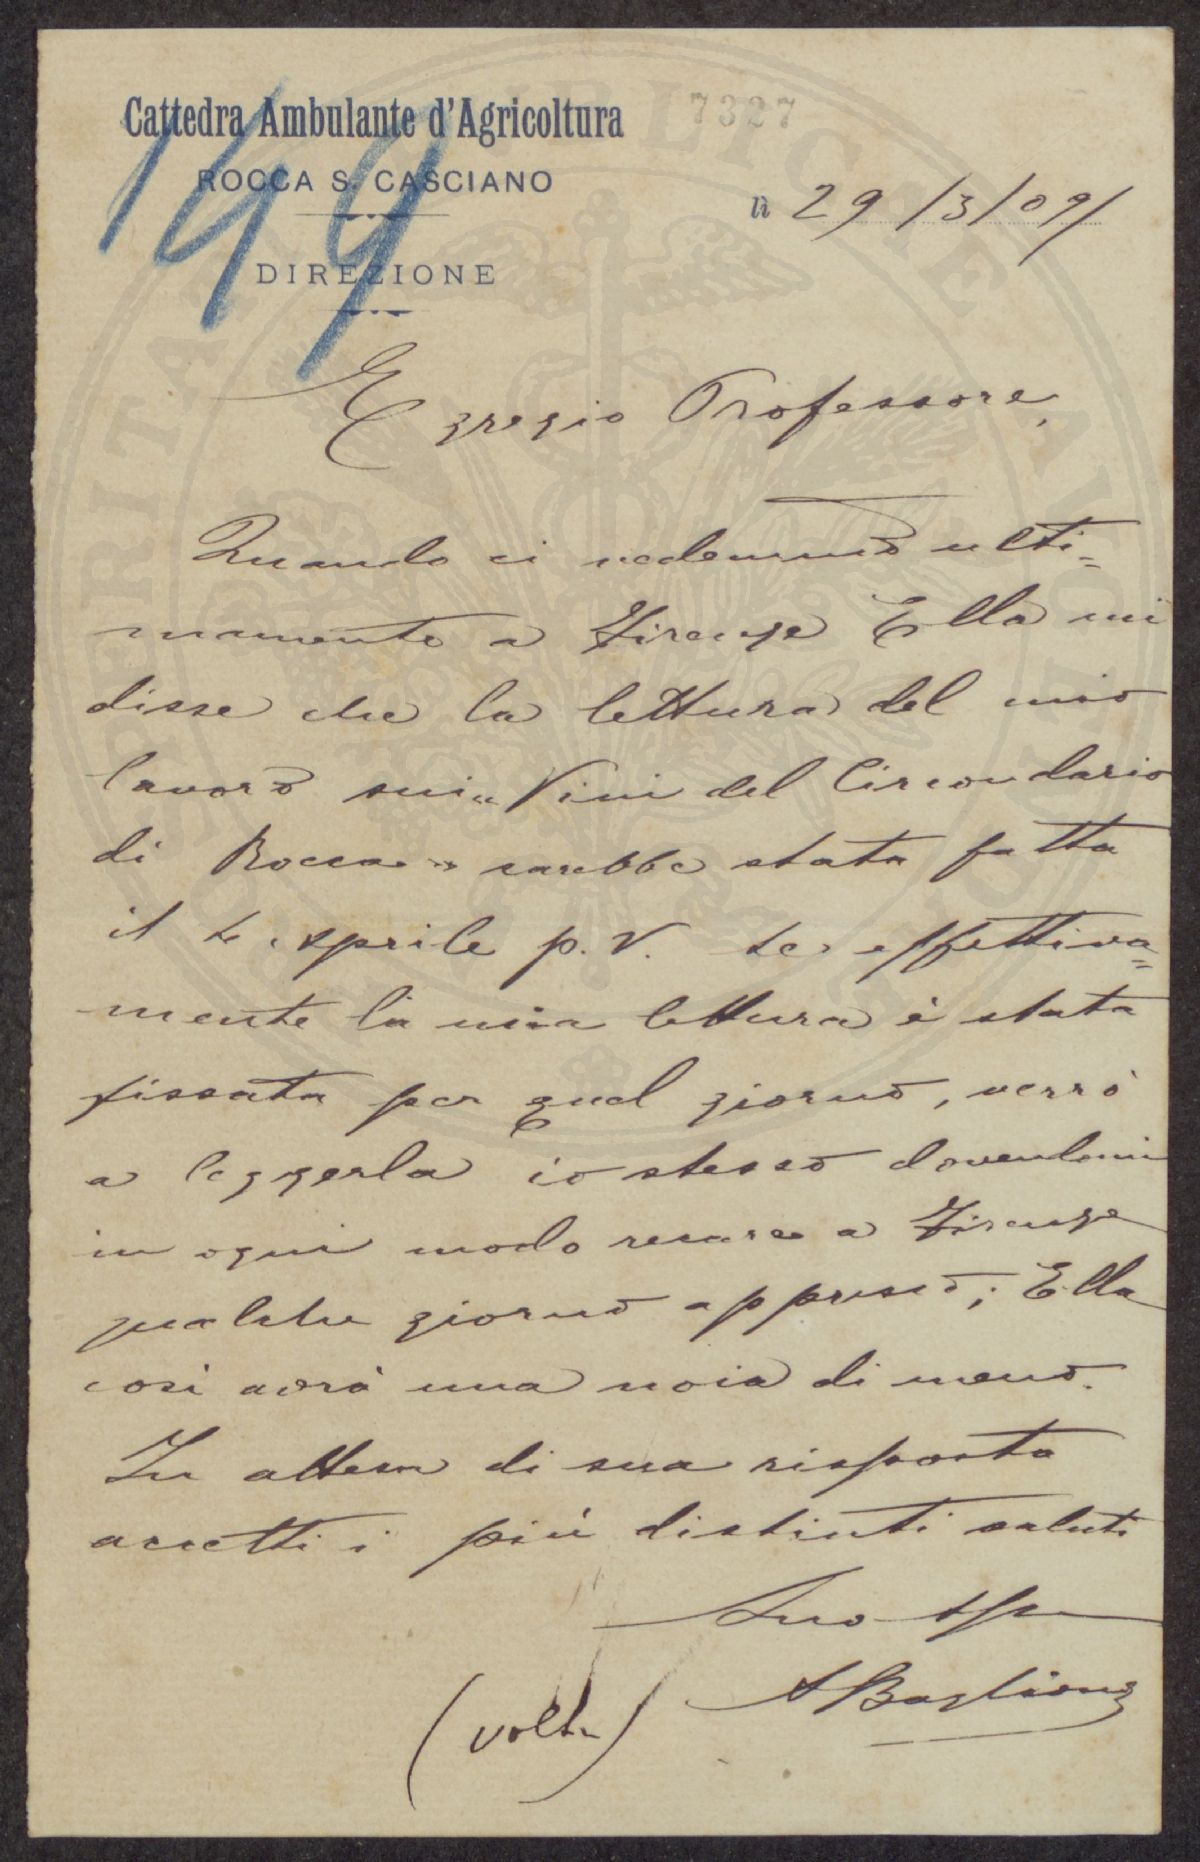 Cattedra Ambulante d'Agricoltura
7327
ROCCA S. CASCIANO
149
lì 29/3/09/
DIREZIONE
Egregio Professore,
Quando ci vedemmo ulti=
mamente a Firenze Ella mi
disse che la lettura del mio
lavoro sui "Vini del Circondario
di Rocca" sarebbe stata fatta
il Aprile p.V. Se effettiva=
mente la mia lettura è stata
fissata per quel giorno, verrò
a leggerla io stesso dovendomi
in ogni modo recare a Firenze
qualche giorno appresso; Ella
così avrà una noia di meno.
In attesa di sua risposta
accetti i più distinti saluti
Suo
ABaglioni
(volta)